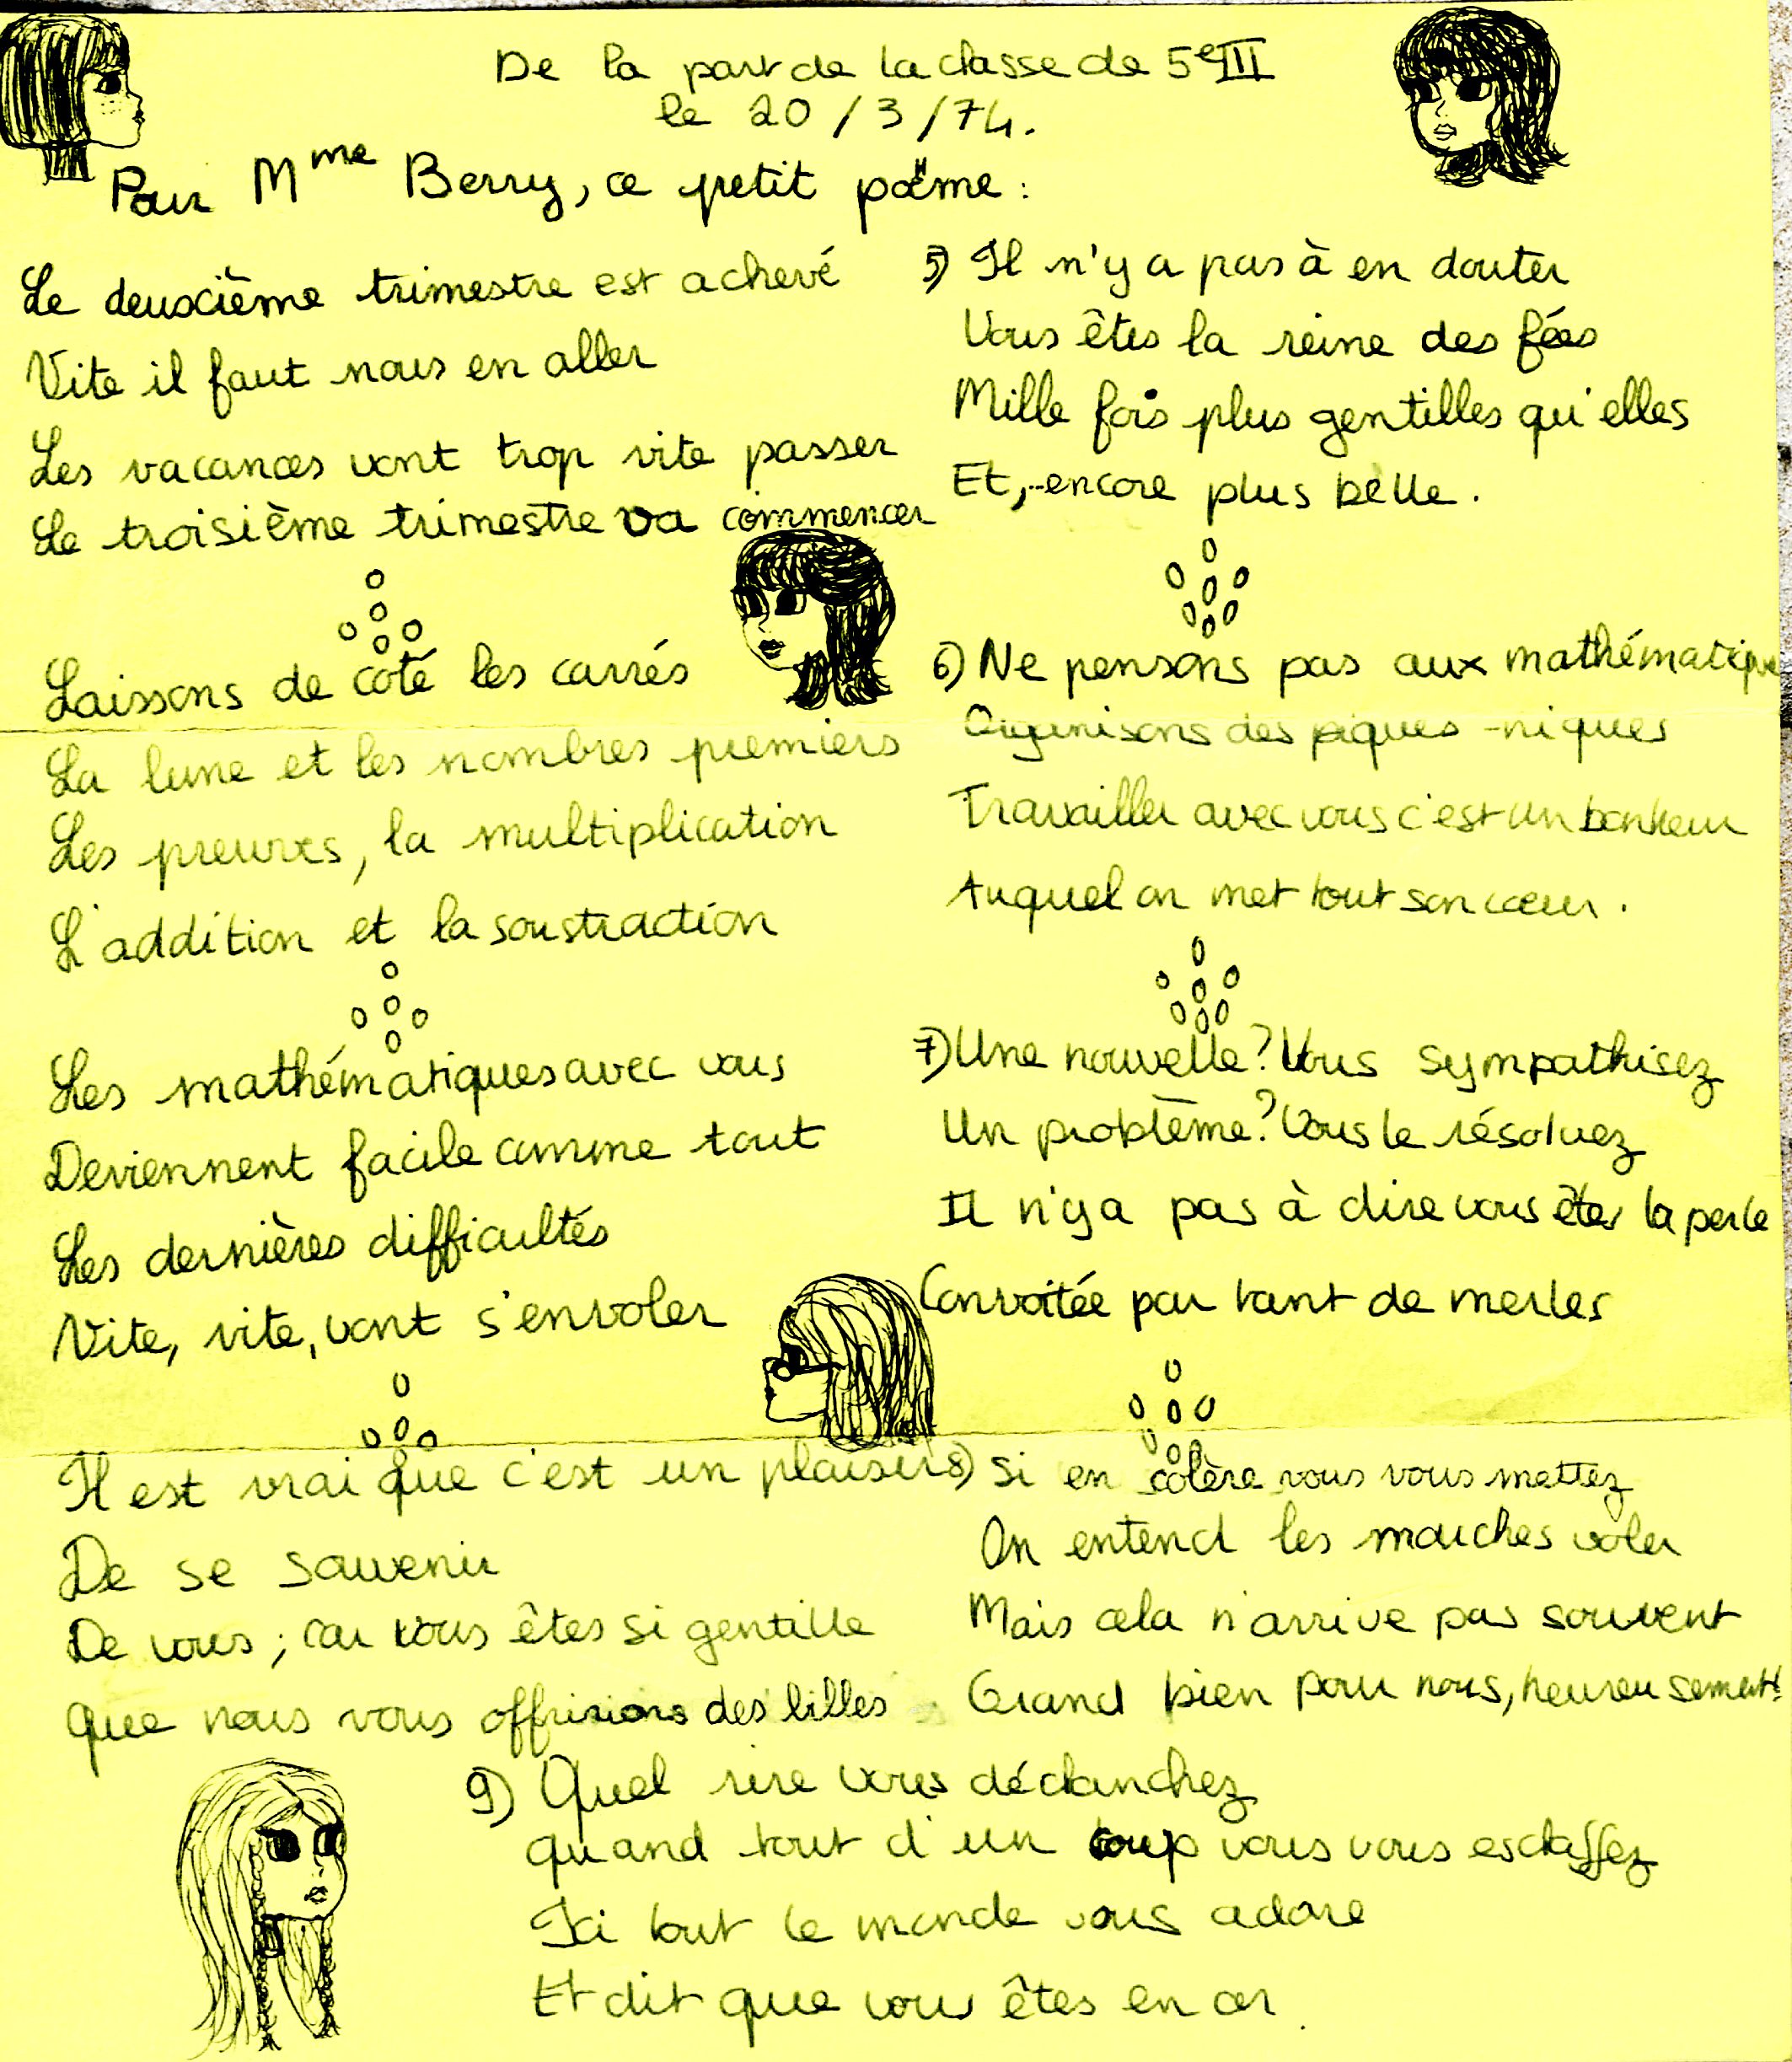 De la part de la classe de 5e III
le 20/3/74.
Pour Mme Berry, ce petit poëme :
Le deuxième trimestre est achevé
Vite il faut nous en aller
Les vacances vont trop vite passer
Le troisième trimestre va commencer
Laissons de coté les carrés
La lune et les nombres premiers
Les preuves, la multiplication
L'addition et la soustraction
Les mathématiques avec vous
Deviennent facile comme tout
Les dernières difficultés
Vite, vite, vont s'envoler
Il est vrai que c'est un plaisir
De se souvenir
De vous ; car vous êtes si gentille
que nous vous offririons des billes
5) Il n'y a pas à en douter
Vous êtes la reine des fées
Mille fois plus gentilles qu'elles
Et, encore plus belle.
6) Ne pensons pas aux mathématique
Organisons des piques-niques
Travailler avec vous c'est un bonheur
Auquel on met tout son cœur.
7) Une nouvelle ? Vous sympathisez
Un problème ? Vous le résoluez
Il n'y a pas à dire vous êtes la perle
Convoitée par tant de merles
8) Si en colère vous vous mettez
On entend les mouches voler
Mais cela n'arrive pas souvent
Grand bien pour nous, heureusement!
9) Quel rire vous déclanchez
quand tout d'un coup vous vous esclaffez
Ici tout le monde vous adore
Et dit que vous êtes en or.